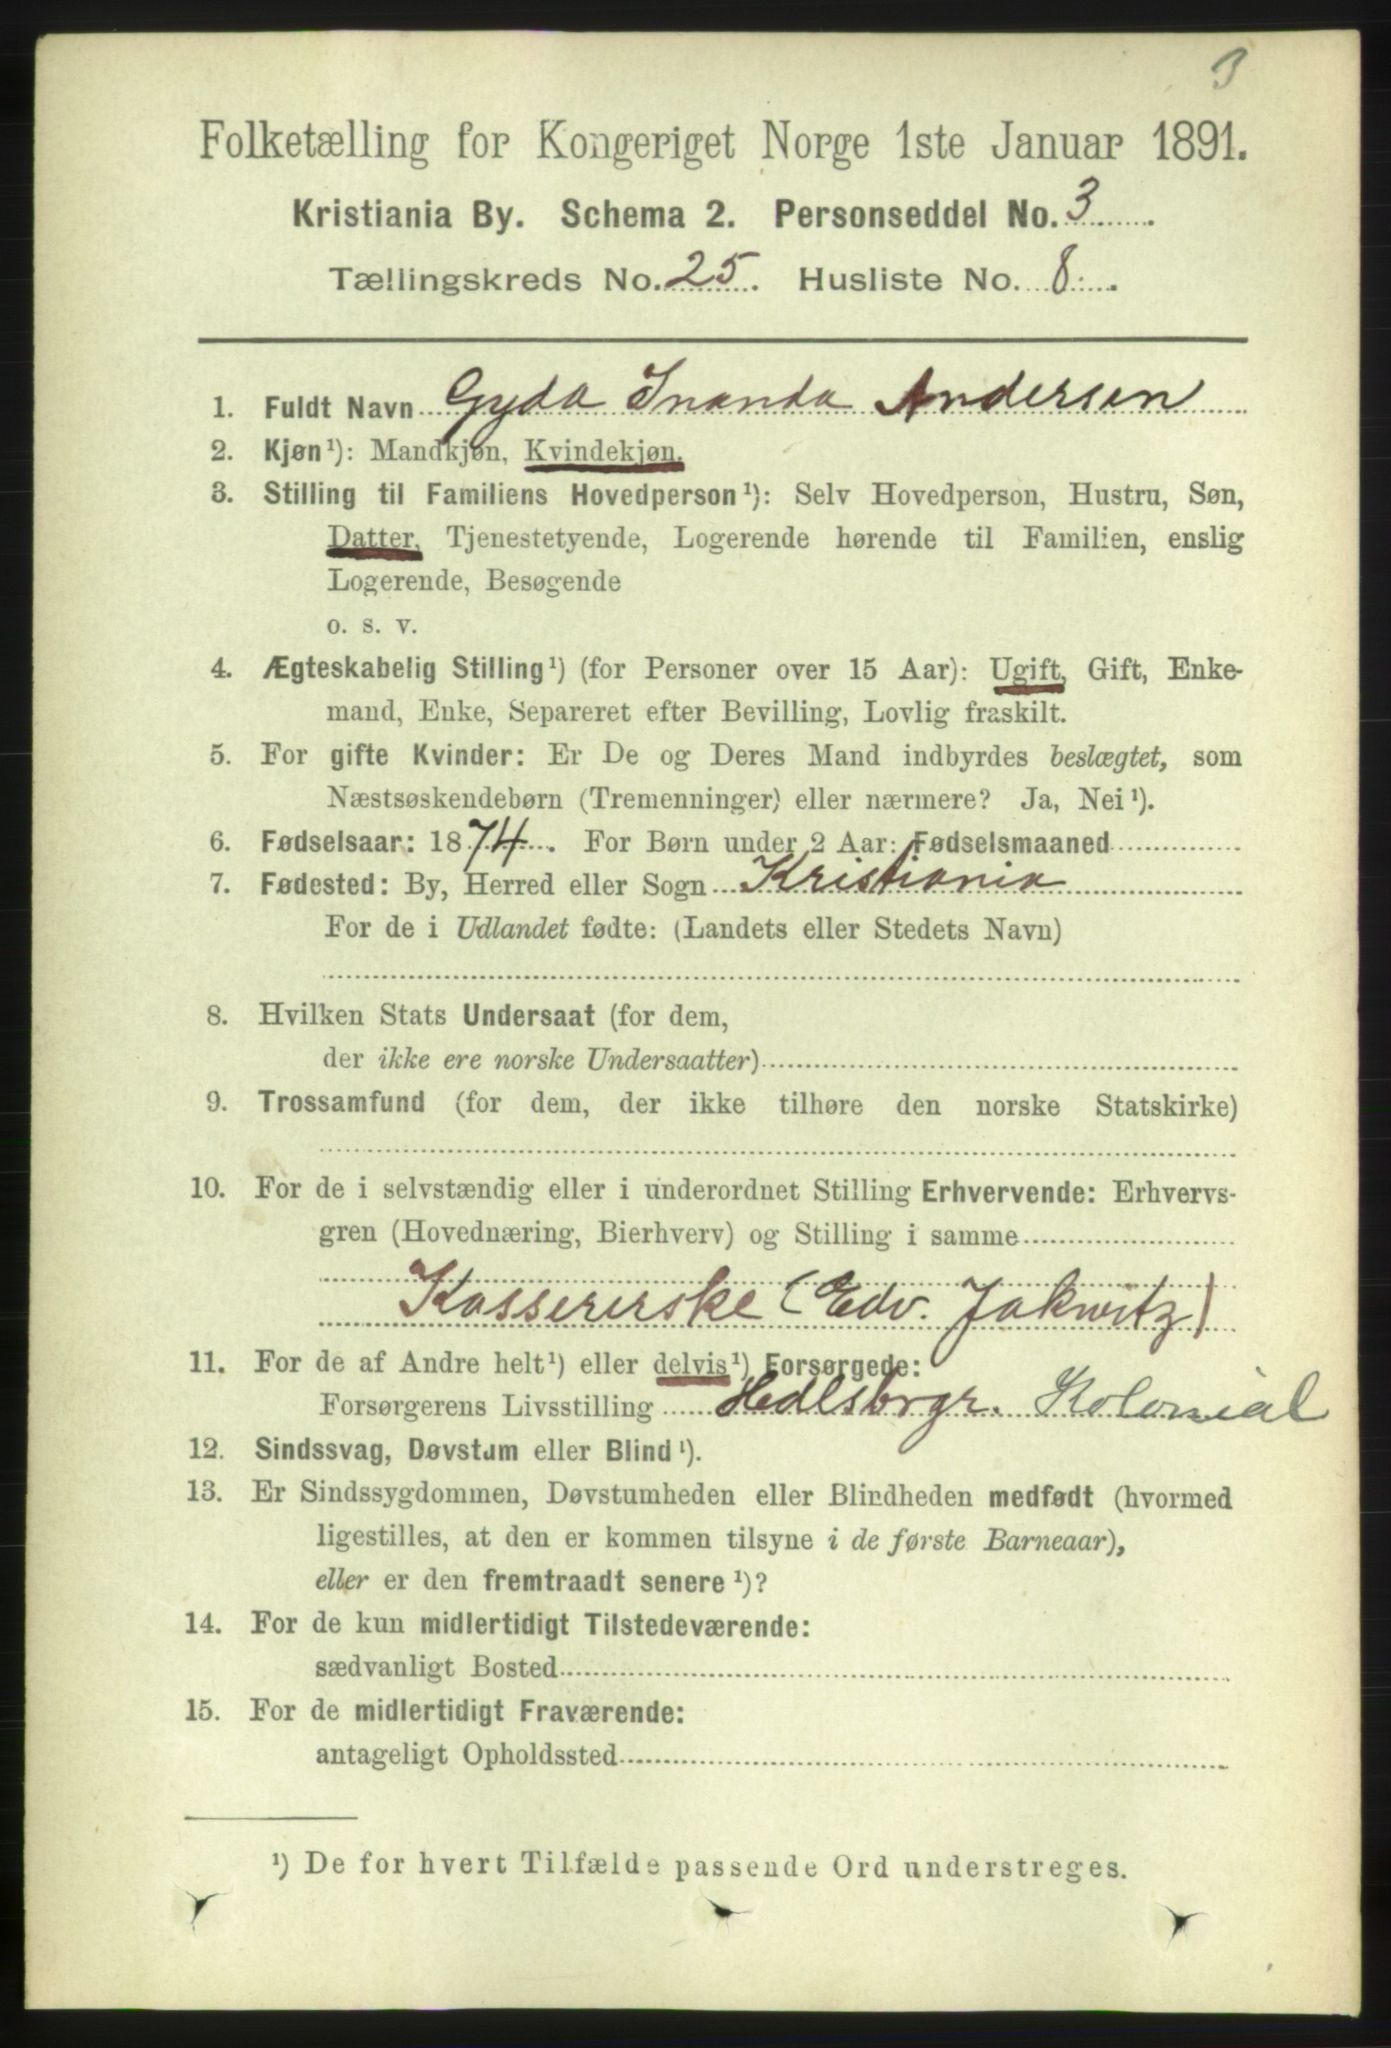 3
Folketælling for Kongeriget Norge 1ste Januar 1891.
Kristiania By. Schema 2. Personseddel No. 3
Tællingskreds No. 25. Husliste No. 8.
1. Fuldt Navn Gyda Inanda Andersen
2. Kjøn¹): Mandkjøn, Kvindekjøn.
3. Stilling til Familiens Hovedperson¹): Selv Hovedperson, Hustru, Søn,
Datter, Tjenestetyende, Logerende hørende til Familien, enslig
Logerende, Besøgende
o. s. v.
4. Ægteskabelig Stilling¹) (for Personer over 15 Aar): Ugift, Gift, Enke-
mand, Enke, Separeret efter Bevilling, Lovlig fraskilt.
5. For gifte Kvinder: Er De og Deres Mand indbyrdes beslægtet, som
Næstsøskendebørn (Tremenninger) eller nærmere? Ja, Nei¹).
6. Fødselsaar: 1874. For Børn under 2 Aar: Fødselsmaaned
7. Fødested: By, Herred eller Sogn Kristiania
For de i Udlandet fødte: (Landets eller Stedets Navn)
8. Hvilken Stats Undersaat (for dem,
der ikke ere norske Undersaatter)
9. Trossamfund (for dem, der ikke tilhøre den norske Statskirke)
10. For de i selvstændig eller i underordnet Stilling Erhvervende: Erhvervs-
gren (Hovednæring, Bierhverv) og Stilling i samme
Kassererske (Edv. Jakwitz)
11. For de af Andre helt¹) eller delvis¹) Forsørgede:
Forsørgerens Livsstilling Hdlsbrgr. Kolonial
12. Sindssvag, Døvstum eller Blind¹).
13. Er Sindssygdommen, Døvstumheden eller Blindheden medfødt (hvormed
ligestilles, at den er kommen tilsyne i de første Barneaar),
eller er den fremtraadt senere¹)?
14. For de kun midlertidigt Tilstedeværende:
sædvanligt Bosted
15. For de midlertidigt Fraværende:
antageligt Opholdssted
¹) De for hvert Tilfælde passende Ord understreges.